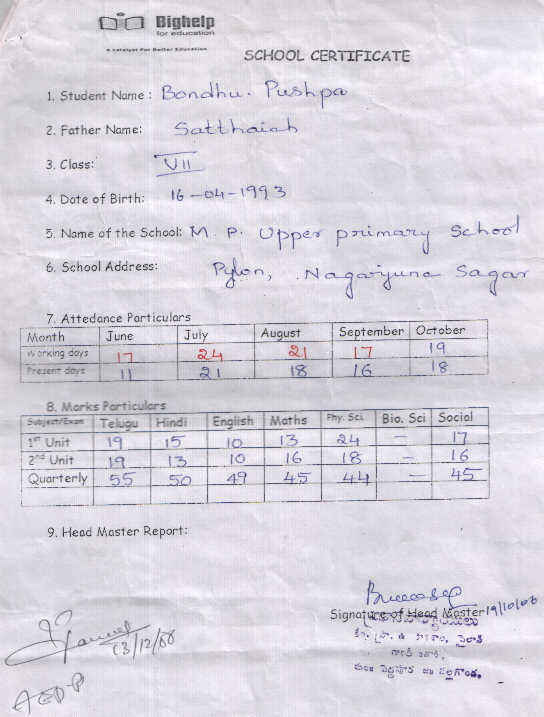 Bighelp
for education
A catalyst For Better Education
SCHOOL CERTIFICATE
1. Student Name : Bondhu. Pushpa
2. Father Name: Satthaiah
3. Class: VII
4. Date of Birth: 16-04-1993
5. Name of the School: M. P. Upper primary School
6. School Address: Pylon, Nagarjuna Sagar
7. Attedance Particulars
Month June July August September October
Working days 17 24 21 17 19
Present days 11 21 18 16 18
8. Marks Particulars
Subject/Exam Telugu Hindi English Maths Phy. Sci. Bio. Sci Social
1st Unit 19 15 10 13 24 – 17
2nd Unit 19 13 10 16 18 – 16
Quarterly 55 50 49 45 44 – 45
9. Head Master Report:
Signature of Head Master 19/10/06